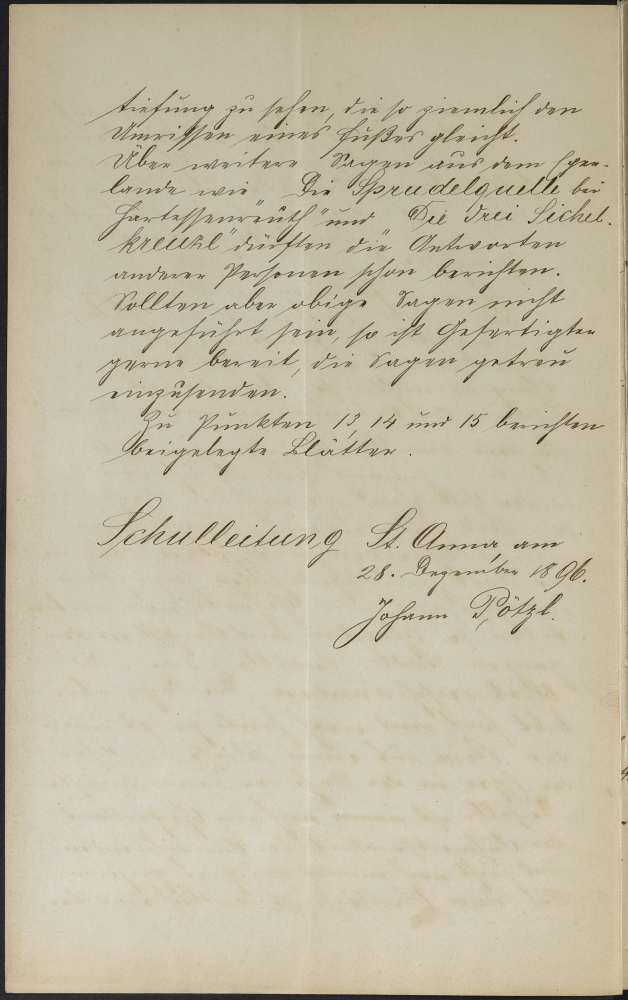 tiefung zu sehen, die so ziemlich den
Umrissen eines Fußes gleicht.
Über weitere Sagen aus dem Eger-
lande wie "Die Sprudelquelle bei
Hartessenreuth" und "Die drei Sichel-
kreuzl" dürften die Antworten
anderer Personen schon berichten.
Sollten aber obige Sagen nicht
angeführt sein, so ist Gefertigter
gerne bereit, die Sagen getreu
einzusenden.
Zu Punkten 13, 14 und 15 berichten
beigelegte Blätter.
Schulleitung St. Anna, am
28. Dezember 1896.
Johann Pötzl.